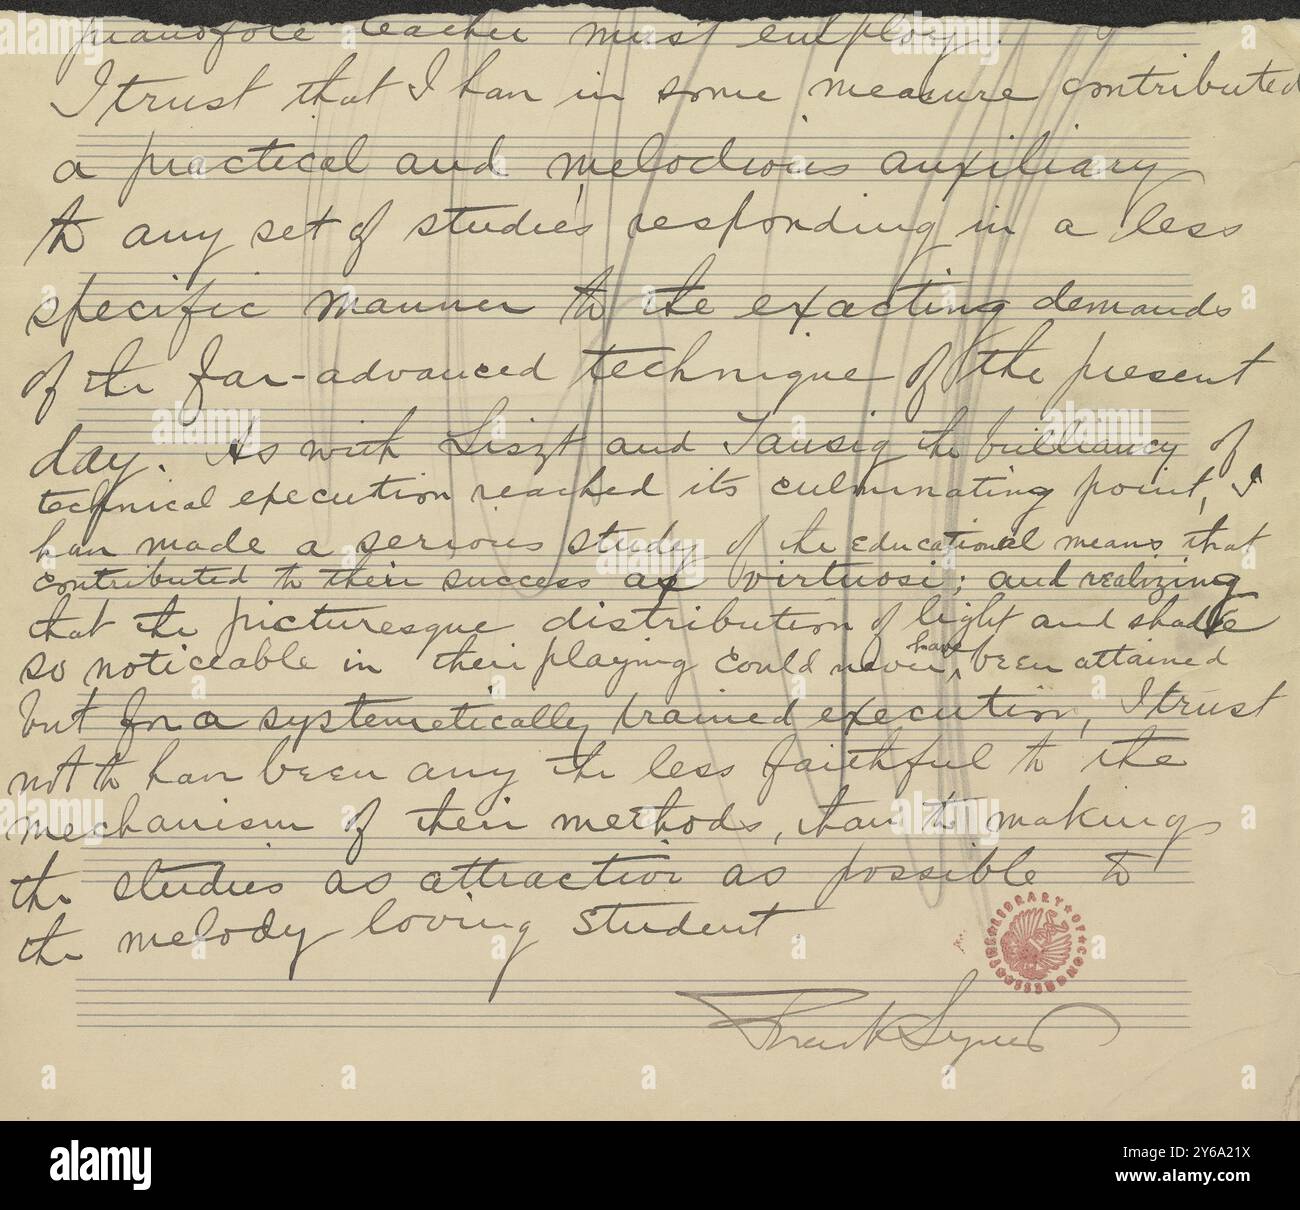 pianoforte teacher must employ.
I trust that I have in some measure contributed
a practical and melodious auxiliary
to any set of studies responding in a less
specific manner to the exacting demands
of the far-advanced technique of the present
day. As with Liszt and Tausig the brilliancy of
technical execution reached its culminating point, I
have made a serious study of the educational means, that
contributed to their success as virtuosi; and realizing
that the picturesque distribution of light and shade
so noticeable in their playing could never have been attained
but for a systemetically trained execution, I trust
not to have been any the less faithful to the
mechanism of their methods, than to making
the studies as attractive as possible to
the melody loving student.
THE LIBRARY OF CONGRESS
Frank Lynes
alamy
Image ID: 2Y6A21X
www.alamy.com